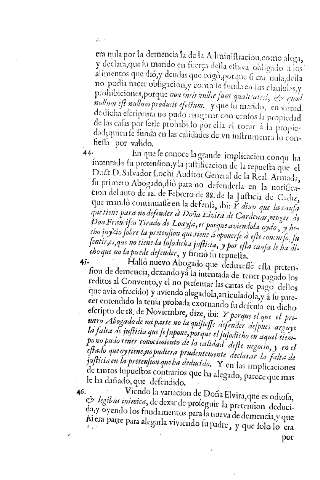 era nula por la demencia de la Administracion, como alega,
y declara, que su marido en fuerça della estuvo obligado a los
alimentos que dió, y deudas que pagó, porque si era nula, della
no pudo nacer obligacion, y como se funda en las clausulas, y
prohibiciones, porque
nullum est nullum producit effectum, y que su marido, en virtud
dedicha escriptura no pudo
de las casas por serle prohibido por ella el tocar à la propie-
dad, que
fiesta por valido.
44. En que se conoce la grande implicacion con que ha
intentado su pretension, y la justificacion de la repuesta que el
Doct. D. Salvador Lochi Auditor General de la Real Armada,
su primero Abogado, dió para no defenderla en la notifica-
cion del auto de 12. de Febrero de 82. de la Justicia de Cadiz,
que mandó continuasse en la defensa, ibi: Y dixo que la causa
que tiene para no defender à Doña Elvira de Cardenas, muger de
Don Francisco Tirado de Loaysa, es porque aviendola oydo, y he-
cho juyzio sobre la pretension que tiene à oponerse à este concurso, su
sentir es, que no tiene la susodicha justicia, y por esta causa le ha di-
cho que no la puede defender, y firmó su repuesta.
45. Halló nuevo Abogado que deduxesse esta preten-
sion de demencia, dexando ya la intentada de tener pagado los
reditos al Convento, y el no presentar las cartas de pago dellos
que avia ofrecido) y aviendo alegadola, articuladola, y à su pare-
cer entendido la tenia probada exornando su defensa en dicho
escripto de 18. de Noviembre, dize, ibi: Y porque el que el pri-
mero Abogado de mi parte no la quisiesse defender despues arguye
la falta de justicia que se supone, porque el susodicho en aquel tiem-
po no pudo tener conocimiento de la calidad deste negocio, y en el
estado que oy tiene, no pudiera prudentemente declarar la falta de
justicia en la pretension que ha deducido. Y en las implicaciones
de tantos supuestos contrarios que ha alegado, parece que mas
le ha dañado, que defendido.
46. Viendo la variacion de Doña Elvira, que es odiosa,
& legibus inimica, de dexar de proseguir la pretension deduci-
da, y oyendo los fundamentos para la nueva de demencia, y que
no era parte para alegarla viviendo su padre, y que solo lo era
por